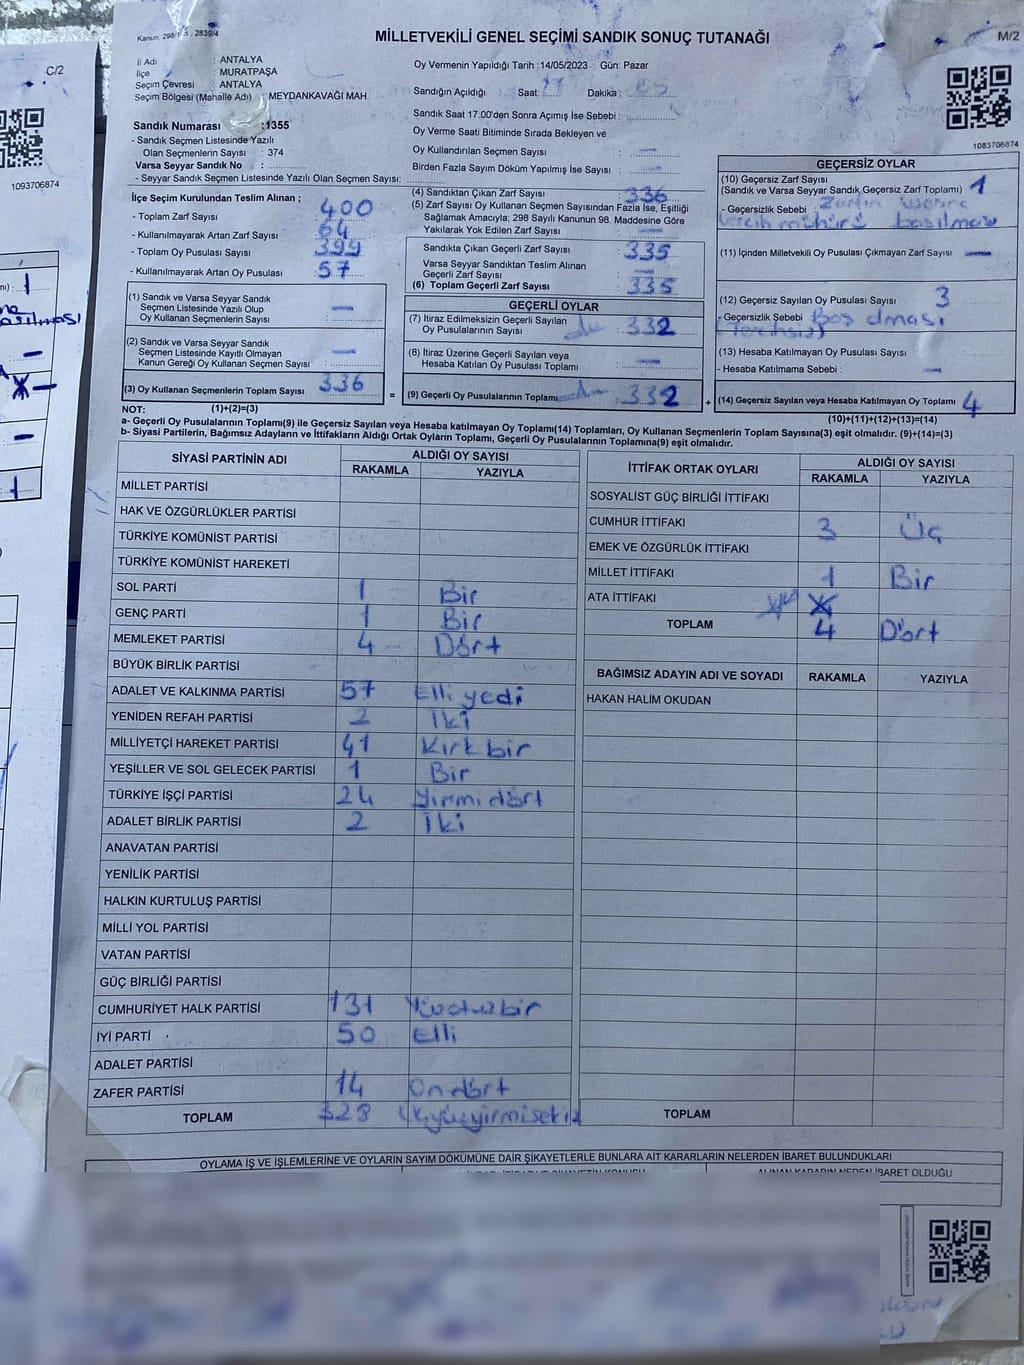 Kanun: 298/1 3 . 2839/4
MİLLETVEKİLİ GENEL SEÇİMİ SANDIK SONUÇ TUTANAĞI
M/2
C/2
1093706874
İl Adı : ANTALYA
İlçe : MURATPAŞA
Seçim Çevresi : ANTALYA
Seçim Bölgesi (Mahalle Adı) : MEYDANKAVAĞI MAH.
Oy Vermenin Yapıldığı Tarih :14/05/2023 Gün: Pazar
Sandığın Açıldığı Saat: Dakika :
Sandık Saat 17:00'den Sonra Açımış İse Sebebi :
Oy Verme Saati Bitiminde Sırada Bekleyen ve
Oy Kullandırılan Seçmen Sayısı : —
Birden Fazla Sayım Döküm Yapılmış İse Sayısı : —
1083706874
Sandık Numarası :1355
- Sandık Seçmen Listesinde Yazılı
Olan Seçmenlerin Sayısı : 374
Varsa Seyyar Sandık No :
- Seyyar Sandık Seçmen Listesinde Yazılı Olan Seçmen Sayısı:
İlçe Seçim Kurulundan Teslim Alınan ;
- Toplam Zarf Sayısı : 400
- Kullanılmayarak Artan Zarf Sayısı : 64
- Toplam Oy Pusulası Sayısı : 399
- Kullanılmayarak Artan Oy Pusulası : 57
(1) Sandık ve Varsa Seyyar Sandık
Seçmen Listesinde Yazılı Olup
Oy Kullanan Seçmenlerin Sayısı : —
(2) Sandık ve Varsa Seyyar Sandık
Seçmen Listesinde Kayıtlı Olmayan
Kanun Gereği Oy Kullanan Seçmen Sayısı : —
(3) Oy Kullanan Seçmenlerin Toplam Sayısı : 336
(4) Sandıktan Çıkan Zarf Sayısı : 336
(5) Zarf Sayısı Oy Kullanan Seçmen Sayısından Fazla İse, Eşitliği
Sağlamak Amacıyla; 298 Sayılı Kanunun 98. Maddesine Göre
Yakılarak Yok Edilen Zarf Sayısı : —
Sandıkta Çıkan Geçerli Zarf Sayısı : 335
Varsa Seyyar Sandıktan Teslim Alınan
Geçerli Zarf Sayısı : —
(6) Toplam Geçerli Zarf Sayısı : 335
GEÇERLİ OYLAR
(7) İtiraz Edilmeksizin Geçerli Sayılan
Oy Pusulalarının Sayısı : 332
(8) İtiraz Üzerine Geçerli Sayılan veya
Hesaba Katılan Oy Pusulası Toplamı : —
= (9) Geçerli Oy Pusulalarının Toplamı 332
GEÇERSİZ OYLAR
(10) Geçersiz Zarf Sayısı
(Sandık ve Varsa Seyyar Sandık Geçersiz Zarf Toplamı) 1
- Geçersizlik Sebebi : Zarfın üzerine
tercih mührü basılması
(11) İçinden Milletvekili Oy Pusulası Çıkmayan Zarf Sayısı —
(12) Geçersiz Sayılan Oy Pusulası Sayısı : 3
- Geçersizlik Sebebi : Boş olması
(Tercihsiz)
(13) Hesaba Katılmayan Oy Pusulası Sayısı
- Hesaba Katılmama Sebebi : —
+ (14) Geçersiz Sayılan veya Hesaba Katılmayan Oy Toplamı 4
NOT: (1)+(2)=(3)
(10)+(11)+(12)+(13)=(14)
a- Geçerli Oy Pusulalarının Toplamı(9) ile Geçersiz Sayılan veya Hesaba katılmayan Oy Toplamı(14) Toplamları, Oy Kullanan Seçmenlerin Toplam Sayısına(3) eşit olmalıdır. (9)+(14)=(3)
b- Siyasi Partilerin, Bağımsız Adayların ve İttifakların Aldığı Ortak Oyların Toplamı, Geçerli Oy Pusulalarının Toplamına(9) eşit olmalıdır.
SİYASİ PARTİNİN ADI ALDIĞI OY SAYISI
RAKAMLA YAZIYLA
MİLLET PARTİSİ
HAK VE ÖZGÜRLÜKLER PARTİSİ
TÜRKİYE KOMÜNİST PARTİSİ
TÜRKİYE KOMÜNİST HAREKETİ
SOL PARTİ 1 Bir
GENÇ PARTİ 1 Bir
MEMLEKET PARTİSİ 4 Dört
BÜYÜK BİRLİK PARTİSİ
ADALET VE KALKINMA PARTİSİ 57 Elli yedi
YENİDEN REFAH PARTİSİ 2 İki
MİLLİYETÇİ HAREKET PARTİSİ 41 Kırk bir
YEŞİLLER VE SOL GELECEK PARTİSİ 1 Bir
TÜRKİYE İŞÇİ PARTİSİ 24 Yirmi dört
ADALET BİRLİK PARTİSİ 2 İki
ANAVATAN PARTİSİ
YENİLİK PARTİSİ
HALKIN KURTULUŞ PARTİSİ
MİLLİ YOL PARTİSİ
VATAN PARTİSİ
GÜÇ BİRLİĞİ PARTİSİ
CUMHURİYET HALK PARTİSİ 131 Yüzotuzbir
İYİ PARTİ 50 Elli
ADALET PARTİSİ
ZAFER PARTİSİ 14 Ondört
TOPLAM 328 Üçyüzyirmisekiz
İTTİFAK ORTAK OYLARI ALDIĞI OY SAYISI
RAKAMLA YAZIYLA
SOSYALİST GÜÇ BİRLİĞİ İTTİFAKI
CUMHUR İTTİFAKI 3 Üç
EMEK VE ÖZGÜRLÜK İTTİFAKI
MİLLET İTTİFAKI 1 Bir
ATA İTTİFAKI
TOPLAM 4 Dört
BAĞIMSIZ ADAYIN ADI VE SOYADI RAKAMLA YAZIYLA
HAKAN HALİM OKUDAN
TOPLAM
OYLAMA İŞ VE İŞLEMLERİNE VE OYLARIN SAYIM DÖKÜMÜNE DAİR ŞİKAYETLERLE BUNLARA AİT KARARLARIN NELERDEN İBARET BULUNDUKLARI
ALINAN KARARIN NEDEN İBARET OLDUĞU